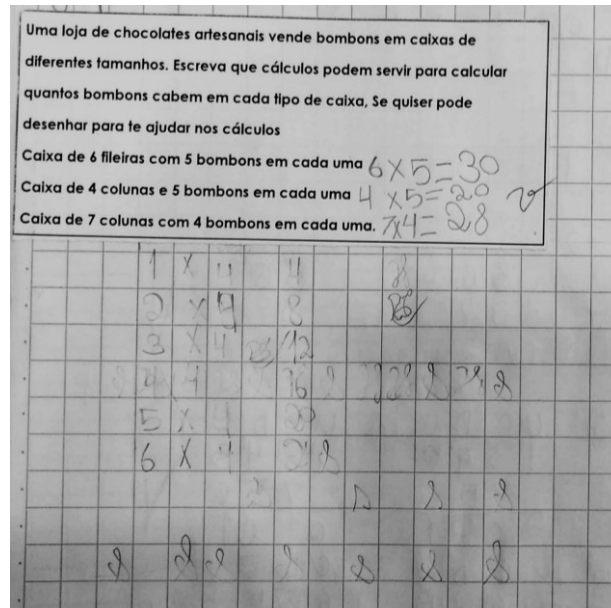 Uma loja de chocolates artesanais vende bombons em caixas de
diferentes tamanhos. Escreva que cálculos podem servir para calcular
quantos bombons cabem em cada tipo de caixa, Se quiser pode
desenhar para te ajudar nos cálculos
Caixa de 6 fileiras com 5 bombons em cada uma 6x5=30
Caixa de 4 colunas e 5 bombons em cada uma 4x5=20
Caixa de 7 colunas com 4 bombons em cada uma. 7x4=28
1 x 4 4
2 x 4 8
3 x 4 12
4 x 4 16
5 x 4
6 x 4